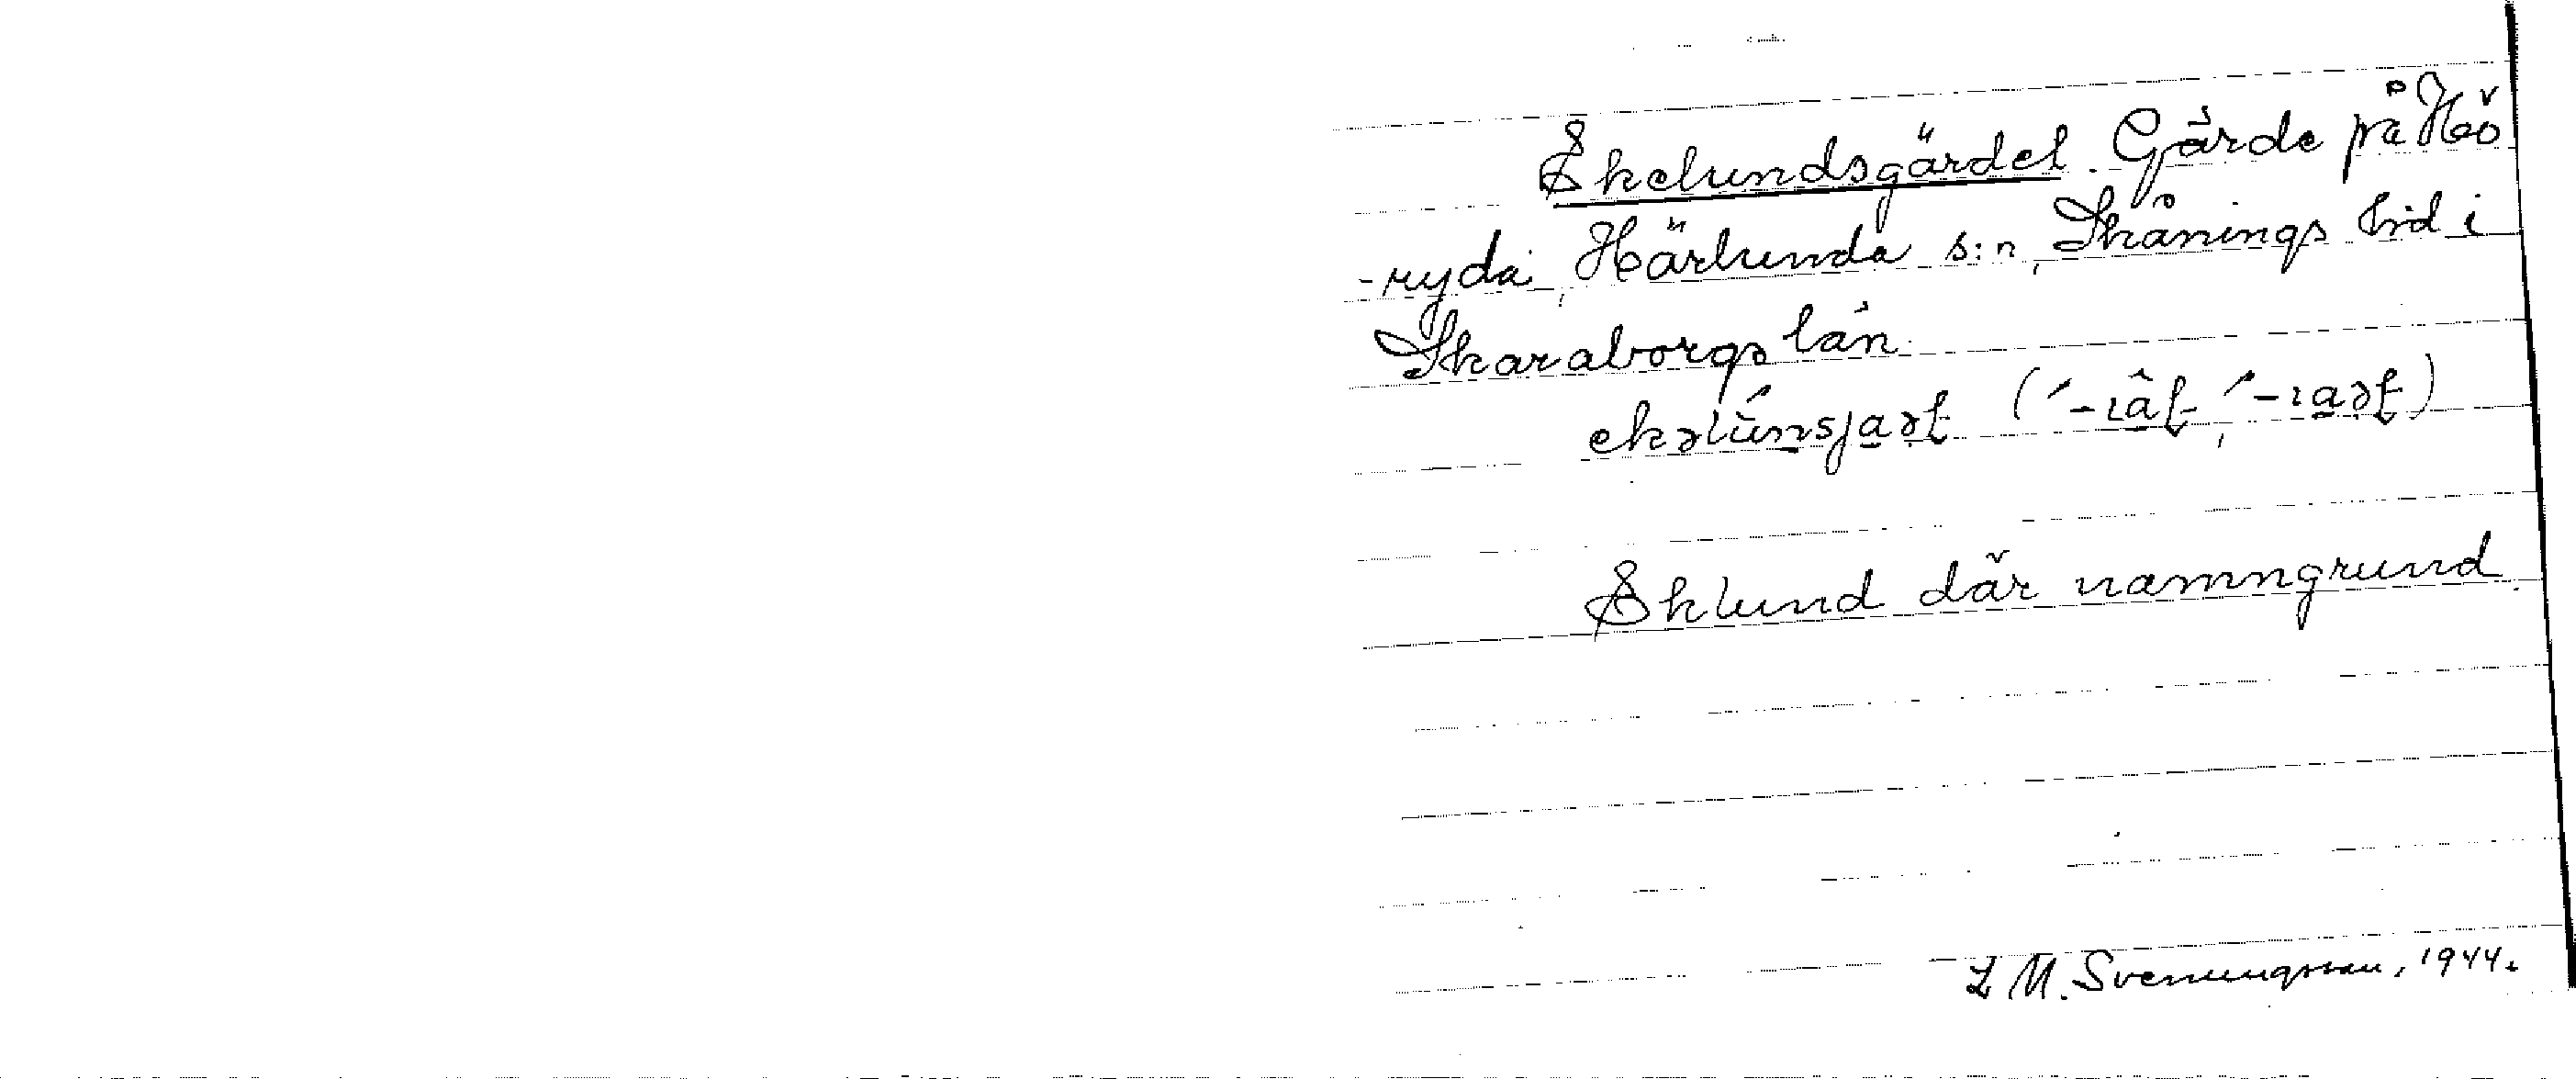 Ekelundsgärdet. Gärde på Hö
-ryda, Härlunda s:n, Skånings hrd i
Skaraborgs län.
Eklund där namngrund.
L M. Svenungsson, 1944.